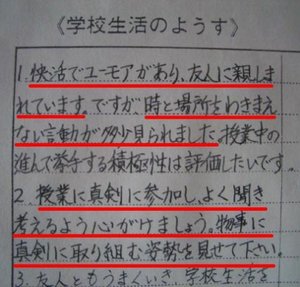 《学校生活のようす》
1. 快活でユーモアがあり、友人に親しま
れています。ですが、時と場所をわきまえ
ない言動が多少見られました。授業中の
進んで挙手する積極性は評価したいです。
2. 授業に真剣に参加し、よく聞き
考えるよう心がけましょう。物事に
真剣に取り組む姿勢を見せて下さい。
3. 友人ともうまくいき、学校生活を